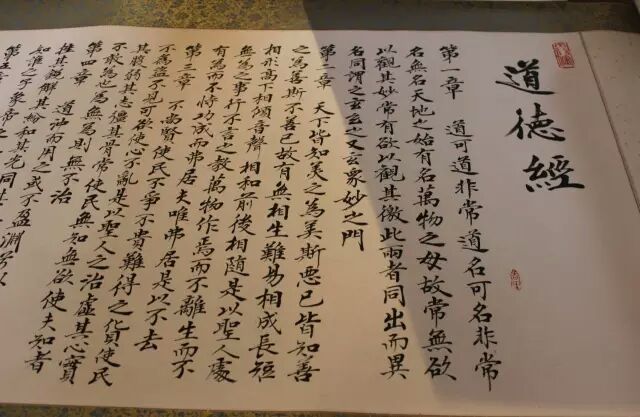 道德經
第一章 道可道非常道名可名非常
名無名天地之始有名萬物之母故常無欲
以觀其妙常有欲以觀其徼此兩者同出而異
名同謂之玄玄之又玄衆妙之門
第二章 天下皆知美之為美斯惡已皆知善
之為善斯不善已故有無相生難易相成長短
相形高下相傾音聲相和前後相隨是以聖人處
無為之事行不言之教萬物作焉而不離生而不
有為而不恃功成而弗居夫唯弗居是以不去
第三章 不尚賢使民不爭不貴難得之貨使民
不為盜不見可欲使心不亂是以聖人之治虛其心實
其腹弱其志強其骨常使民無知無欲使夫知者
不敢為也為無為則無不治
第四章 道沖而用之或不盈淵兮
挫其銳解其紛和其光同其
知誰之子象帝之
第五章